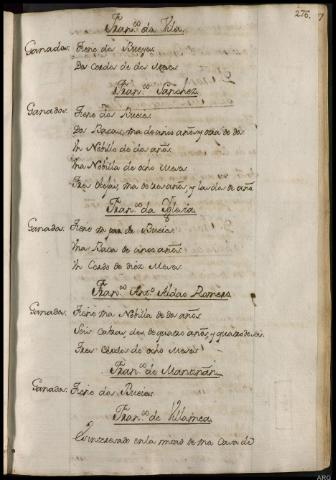 276.
Fran.co da Vila
Ganados: Tiene dos Bueyes
Dos Cerdos de dos Meses
Fran.co Sanchez
Ganados: Tiene dos Bueies
Dos Bacas, una de cinco años y otra de dos
Un Nobillo de dos años
Una Nobilla de ocho Meses
Tres Obejas, una de tres años, y las dos de año
Fran.co da Yglesia
Ganados: Tiene un par de Bueies
Una Baca de cinco años
Un Cerdo de diez Meses
Fran.co Ant.o Aldao Romero
Ganados: Tiene una Nobilla de dos años
Seis Cabras, dos de quatro años, y quatro de
Tres Cerdos de ocho Meses
Fran.co de
Ganados: Tiene dos Bueies
Fran.co de
Es interesado en la mitad de una Casa de
ARQ